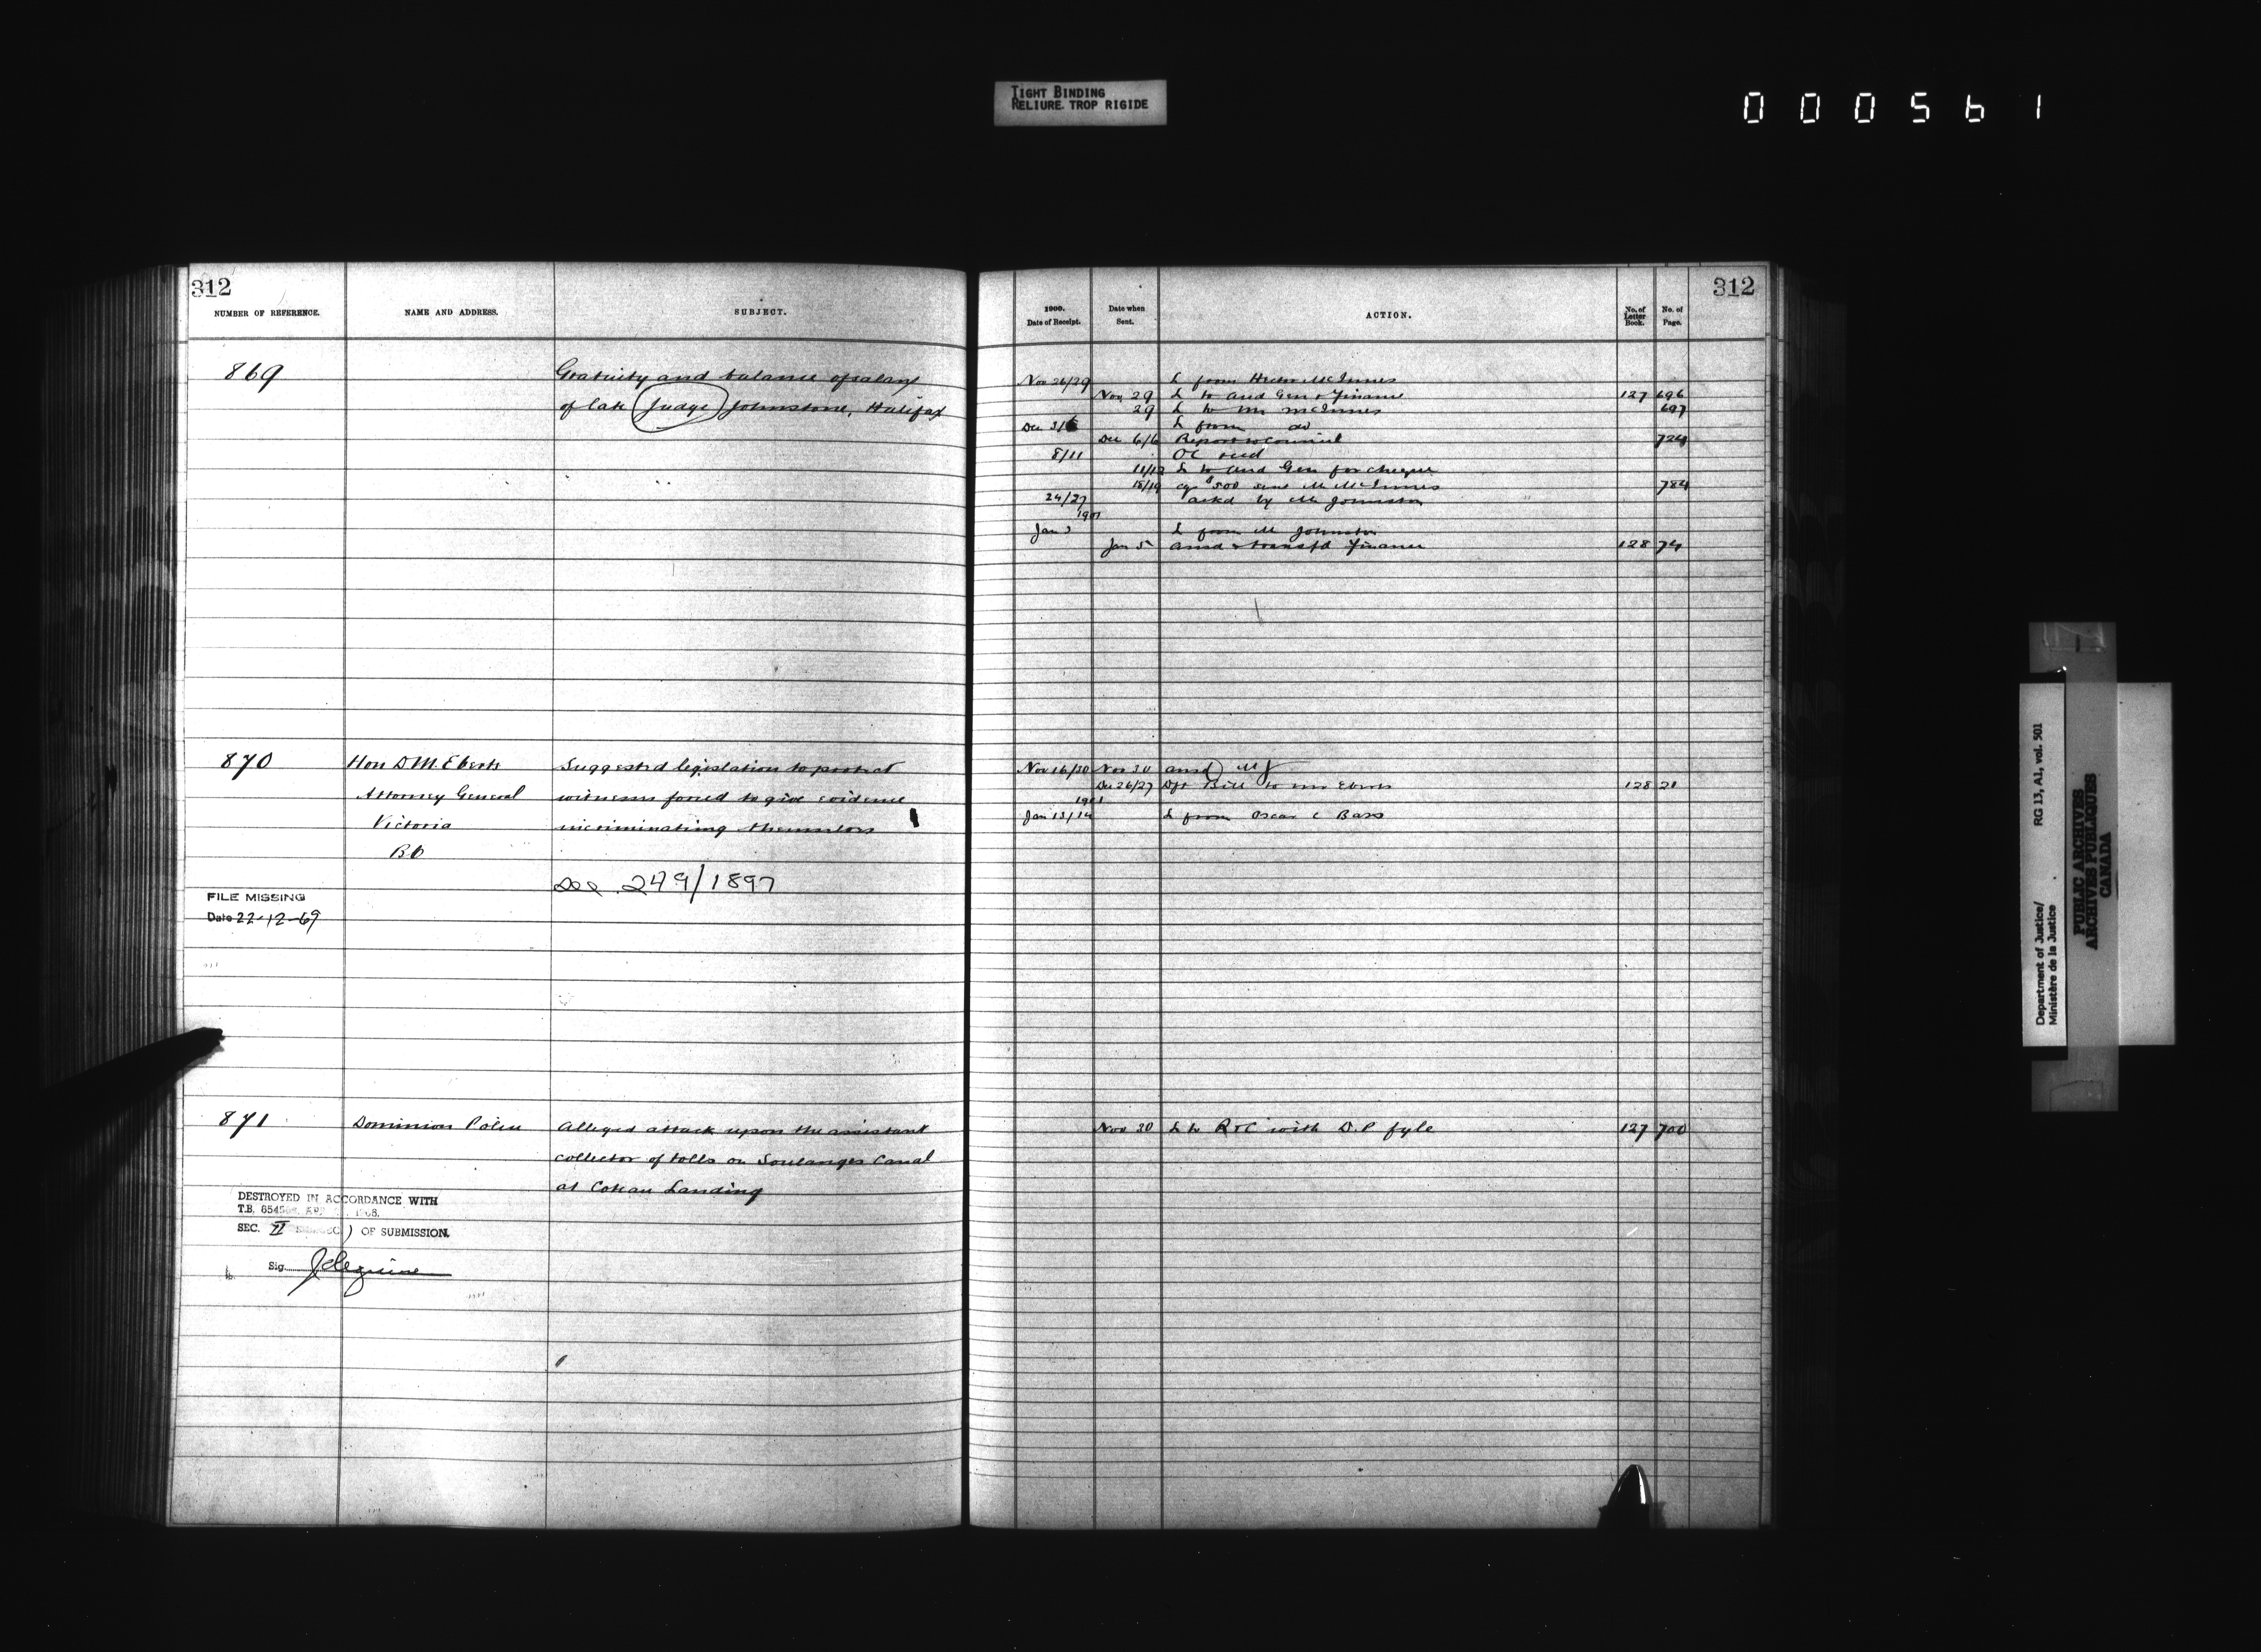 TIGHT BINDING
RELIURE TROP RIGIDE
000561
312
NUMBER OF REFERENCE. NAME AND ADDRESS. SUBJECT.
869 Gratuity and balance of salary
of late Judge Johnstone, Halifax
870 Hon D M. Eberts Suggested legislation to protect
Attorney General witnesses forced to give evidence
Victoria incriminating themselves
BC
See 249/1897
FILE MISSING
Date 22-12-69
871 Dominion Police Alleged attack upon the assistant
collector of tolls on Soulanges Canal
at Coteau Landing
DESTROYED IN ACCORDANCE WITH
T.B.
SEC. II OF SUBMISSION.
Sig.
312
1900. Date of Receipt. Date when Sent. ACTION. No. of Letter Book. No. of Page.
Nov 26/29 L from Hector McInnes
Nov 29 L to Aud Gen & Finance 127 696
29 L to Mr McInnes 697
Dec L from do
Dec 6/6 Report to Council 724
8/11 OC recd
11/12 L to Aud Gen for cheque
18/19 $500 sent Mr McInnes 784
24/27 ackd by Mr Johnston
1901
Jan 3 L from Mr Johnston
Jan 5 ansd & transfd Finance 128 74
Nov 16/30 Nov 30 ansd MJ
Dec 26/27 Dft Bill to Mr Eberts 128 21
1901
Jan 13/14 L from Oscar C Bass
Nov 30 L to R & C with D.P fyle 127 700
Department of Justice/ RG 13, A1, vol. 501
Ministère de la Justice
PUBLIC ARCHIVES
ARCHIVES PUBLIQUES
CANADA